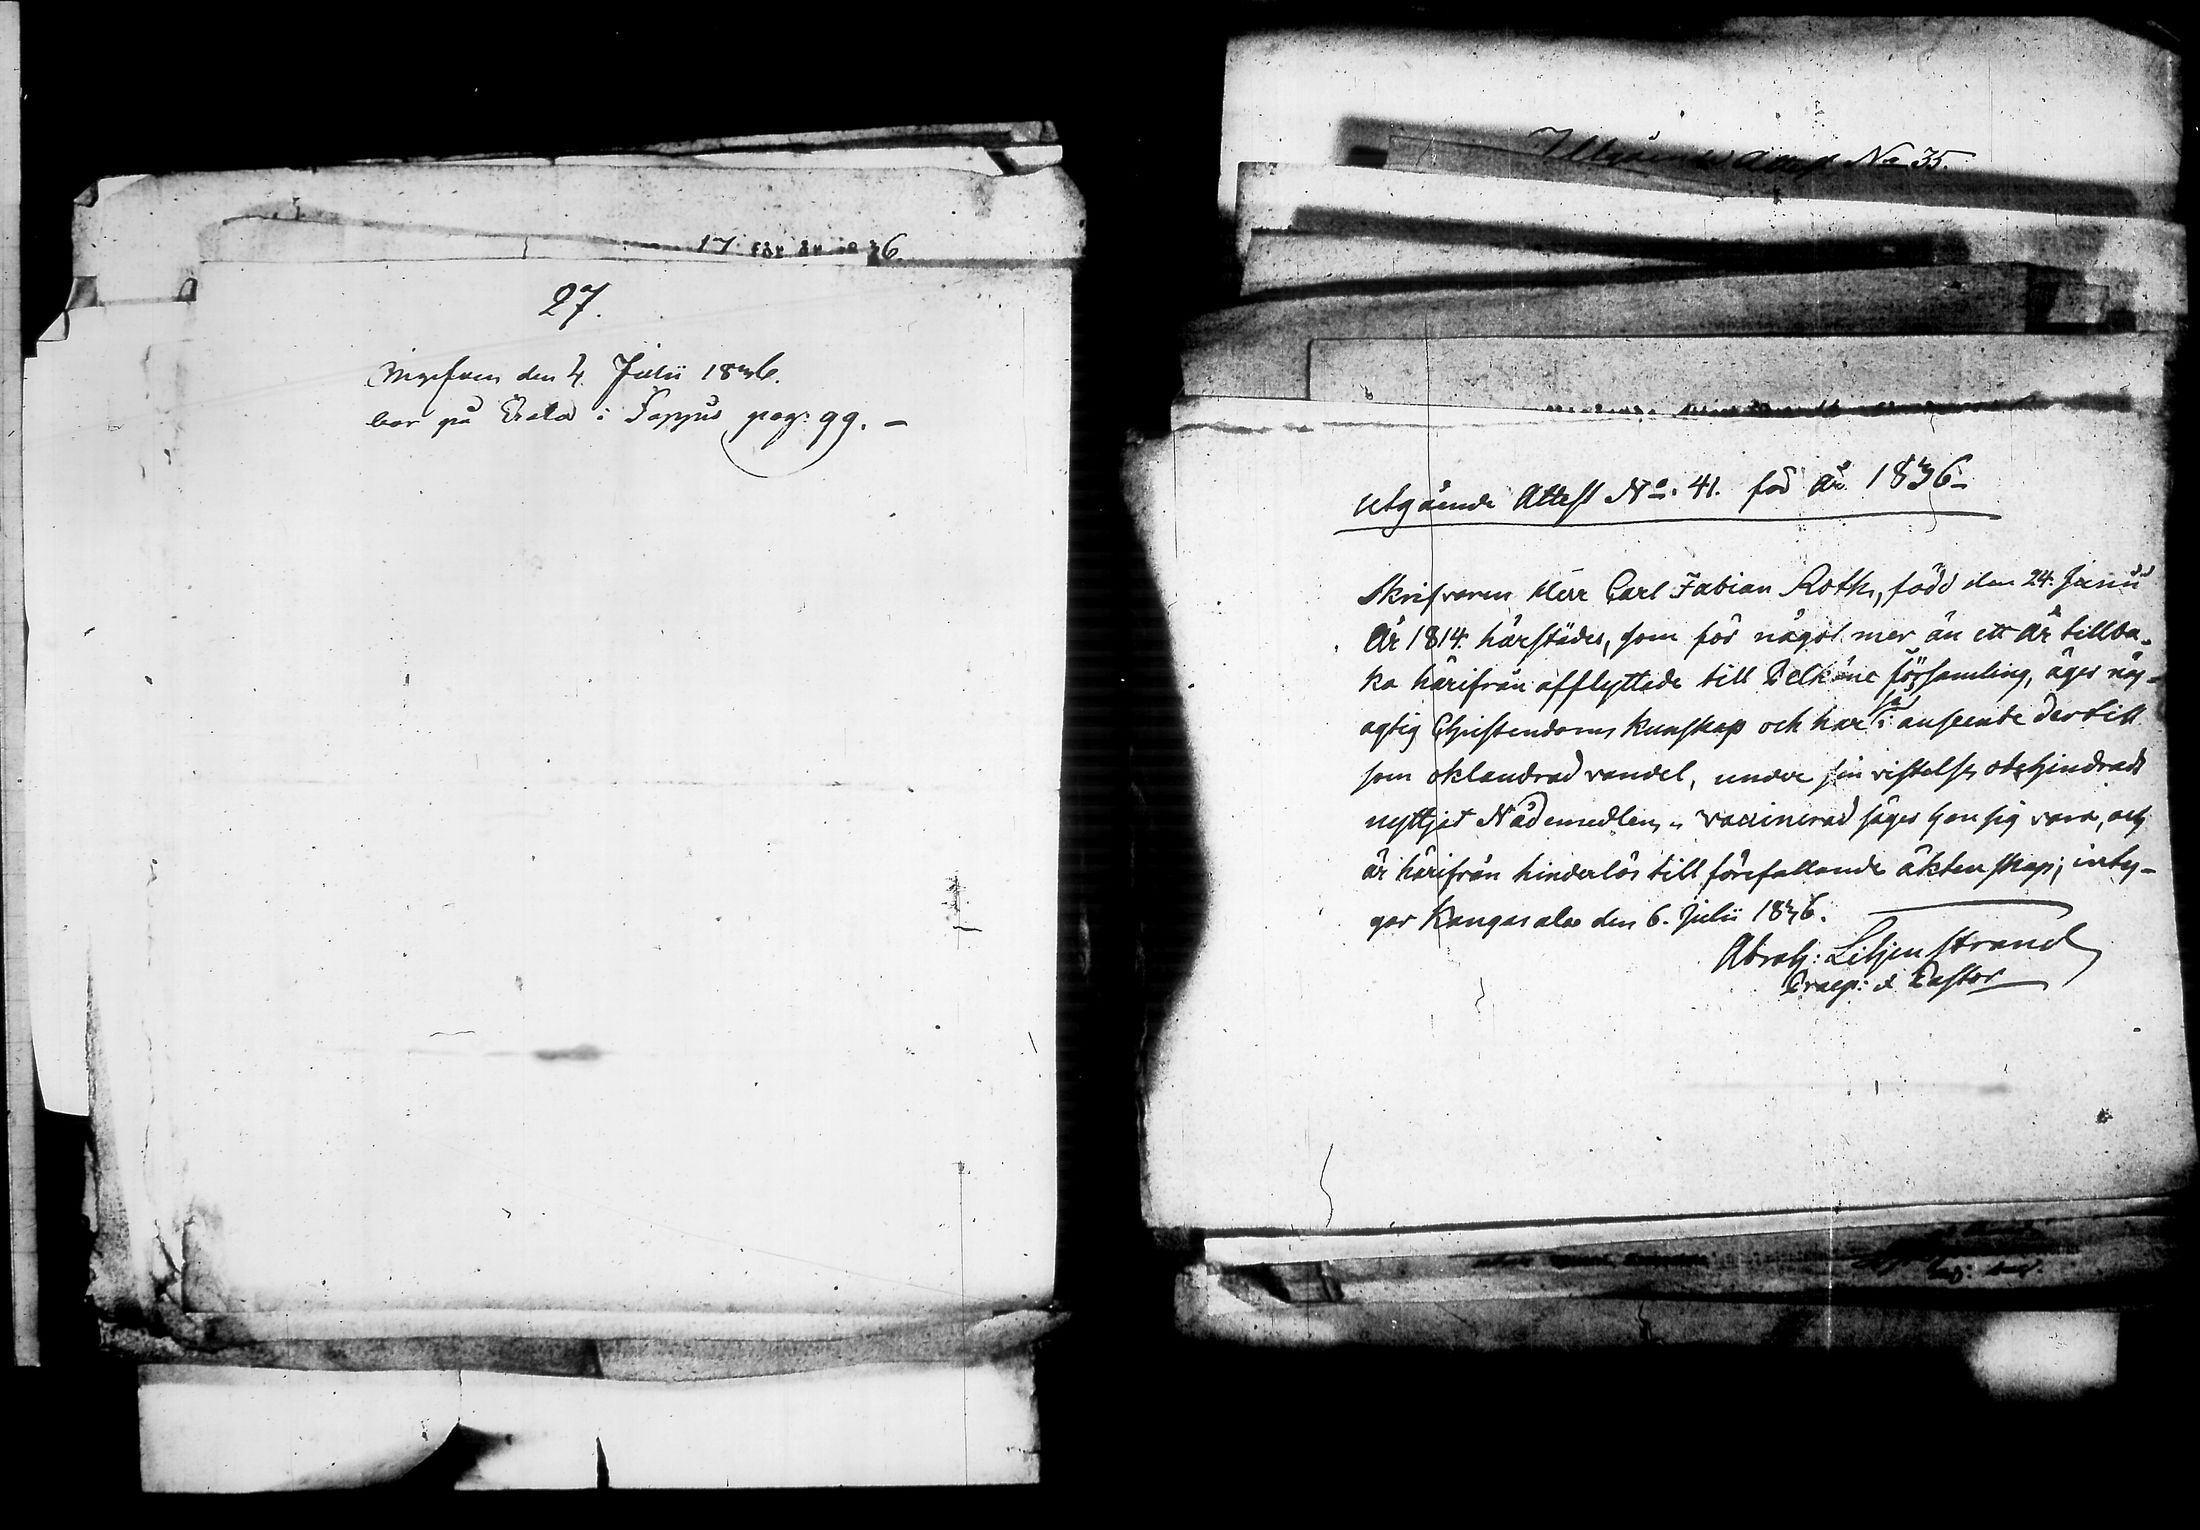 17 för år 1836.
27.
Ingifven den 4 Julii 1836.
bor på Erola i Toppus pag: 99. –
Utgående Attest No 35.
Utgående Attest No. 41. för år 1836–
Skrifvaren Herr Carl Fabian Roth, född den 24. Junii
År 1814. härstädes, som för något mer än ett År tillba-
ka härifrån afflyttade till Pelkäne församling, äger nöj-
agtig Christendoms kunskap och har så i anseende dertill
som oklandrad vandel, under sin vistelse obehindradt
nyttjat Nådemedlen, vaccinerad säges han sig vara, och
är härifrån hinderlös till förefallande äktenskap; inty-
gar Kangasala den 6. Julii 1836.
Abrah: Liljenstrand
Praep: & Pastor